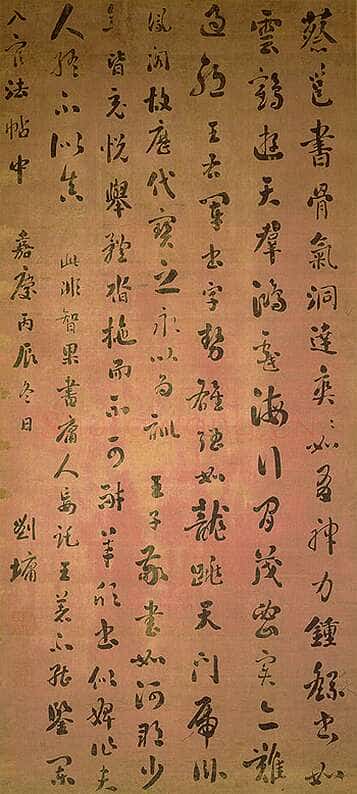 蔡邕書骨氣洞達爽爽如有神力鍾繇書如
雲鶴遊天羣鴻戲海行間茂密實亦難
過 王右軍書字勢雄強如龍跳天門虎臥
鳳閣故歷代寶之永以為訓 王子敬書如河朔少
年皆充悅舉體沓拖而不可耐羊欣書似婢作夫
人 不似真 此非智果書庸人妄託王著不能鑒
入官法帖中 嘉慶丙辰冬日 劉墉